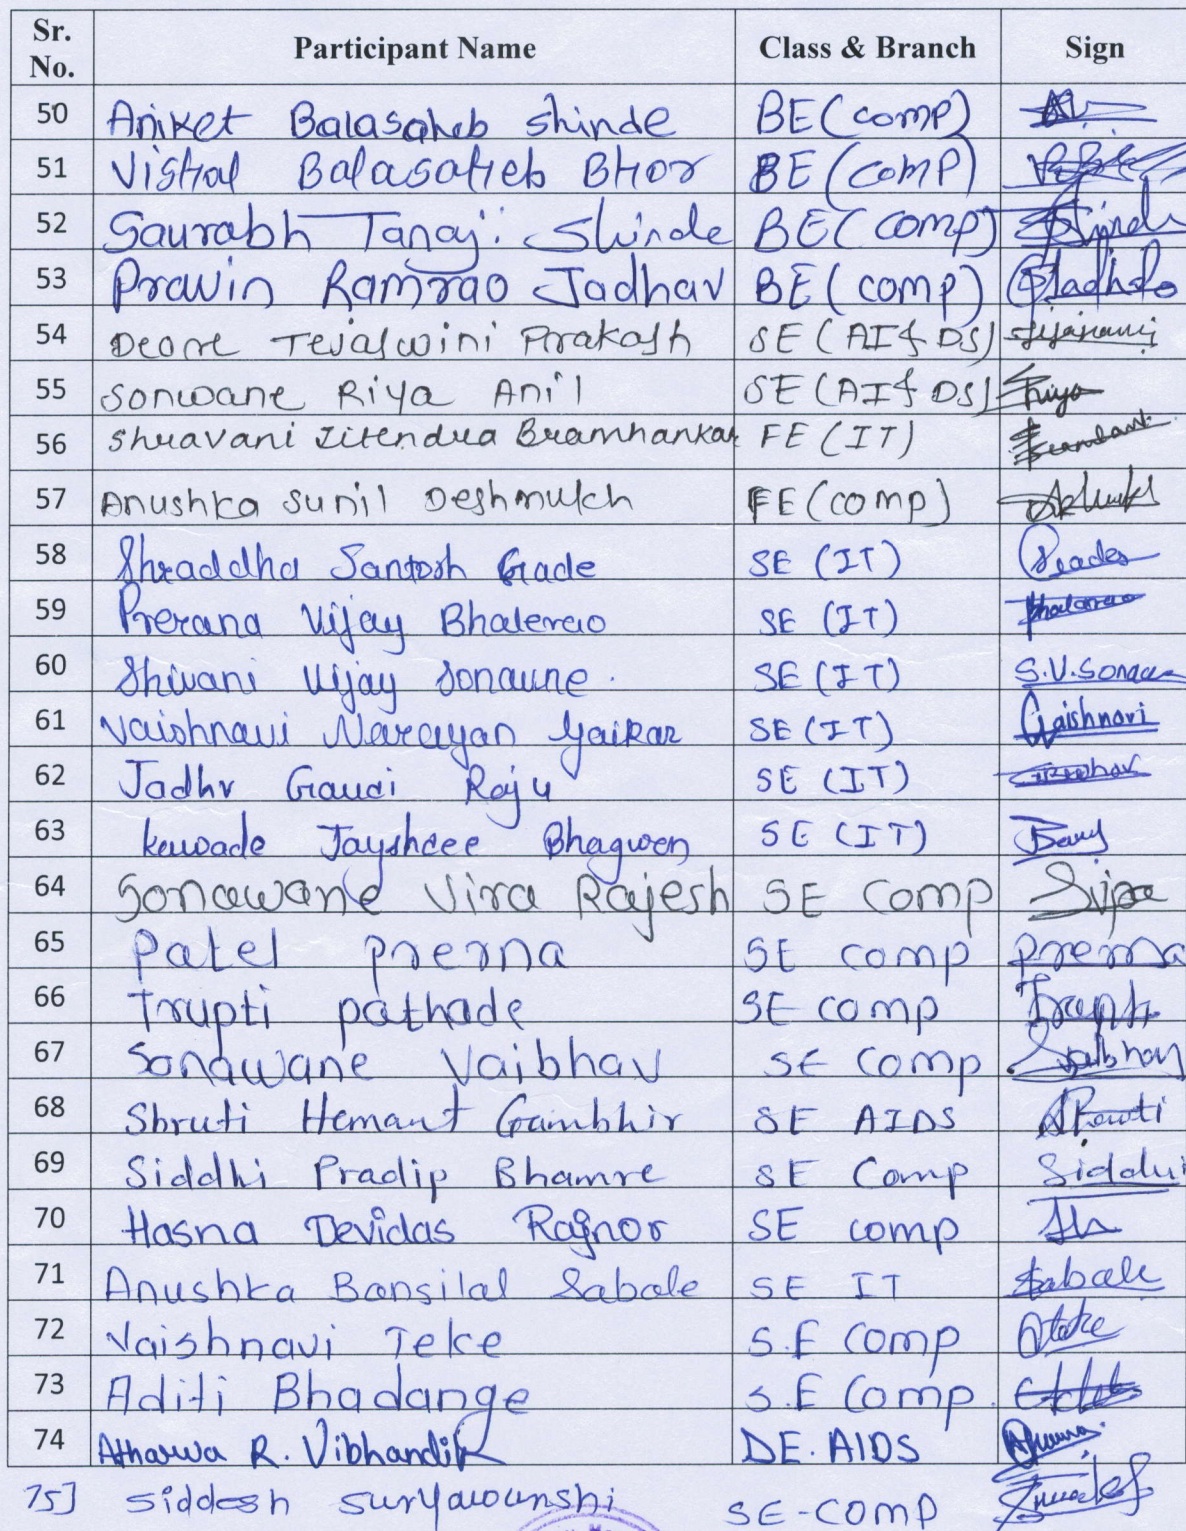 Sr. No. Participant Name Class & Branch Sign
50 Aniket Balasaheb Shinde BE (comp)
51 Vishal Balasaheb Bhor BE (comp)
52 Saurabh Tanaji Shinde BE (comp) Shinde
53 Pravin Ramrao Jadhav BE (comp) Jadhav
54 Deore Tejaswini Prakash SE (AI & DS)
55 Sonwane Riya Anil SE (AI & DS) Riya
56 Shravani Jitendra Bramhankar FE (IT)
57 Anushka Sunil Deshmukh FE (comp)
58 Shraddha Santosh Gade SE (IT)
59 Prerana Vijay Bhalerao SE (IT) Bhalerao
60 Shivani Vijay Sonaune. SE (IT) S.V.Sonaune
61 Vaishnavi Narayan Gaikar SE (IT) Vaishnavi
62 Jadhv Gauri Raju SE (IT)
63 Kewade Jayshree Bhagwan SE (IT)
64 Sonawane Vira Rajesh SE Comp
65 Patel Prerna SE comp Prerna
66 Trupti pathade SE comp Trupti
67 Sonawane Vaibhav SE Comp Vaibhav
68 Shruti Hemant Gambhir SE AIDS Shruti
69 Siddhi Pradip Bhamre SE Comp Siddhi
70 Hasna Devidas Rajnor SE comp
71 Anushka Bansilal Sabale SE IT Sabale
72 Vaishnavi Teke S.E Comp
73 Aditi Bhadange S.E Comp.
74 Atharwa R. Vibhandik DE. AIDS
75] Siddesh Suryawanshi SE-COMP